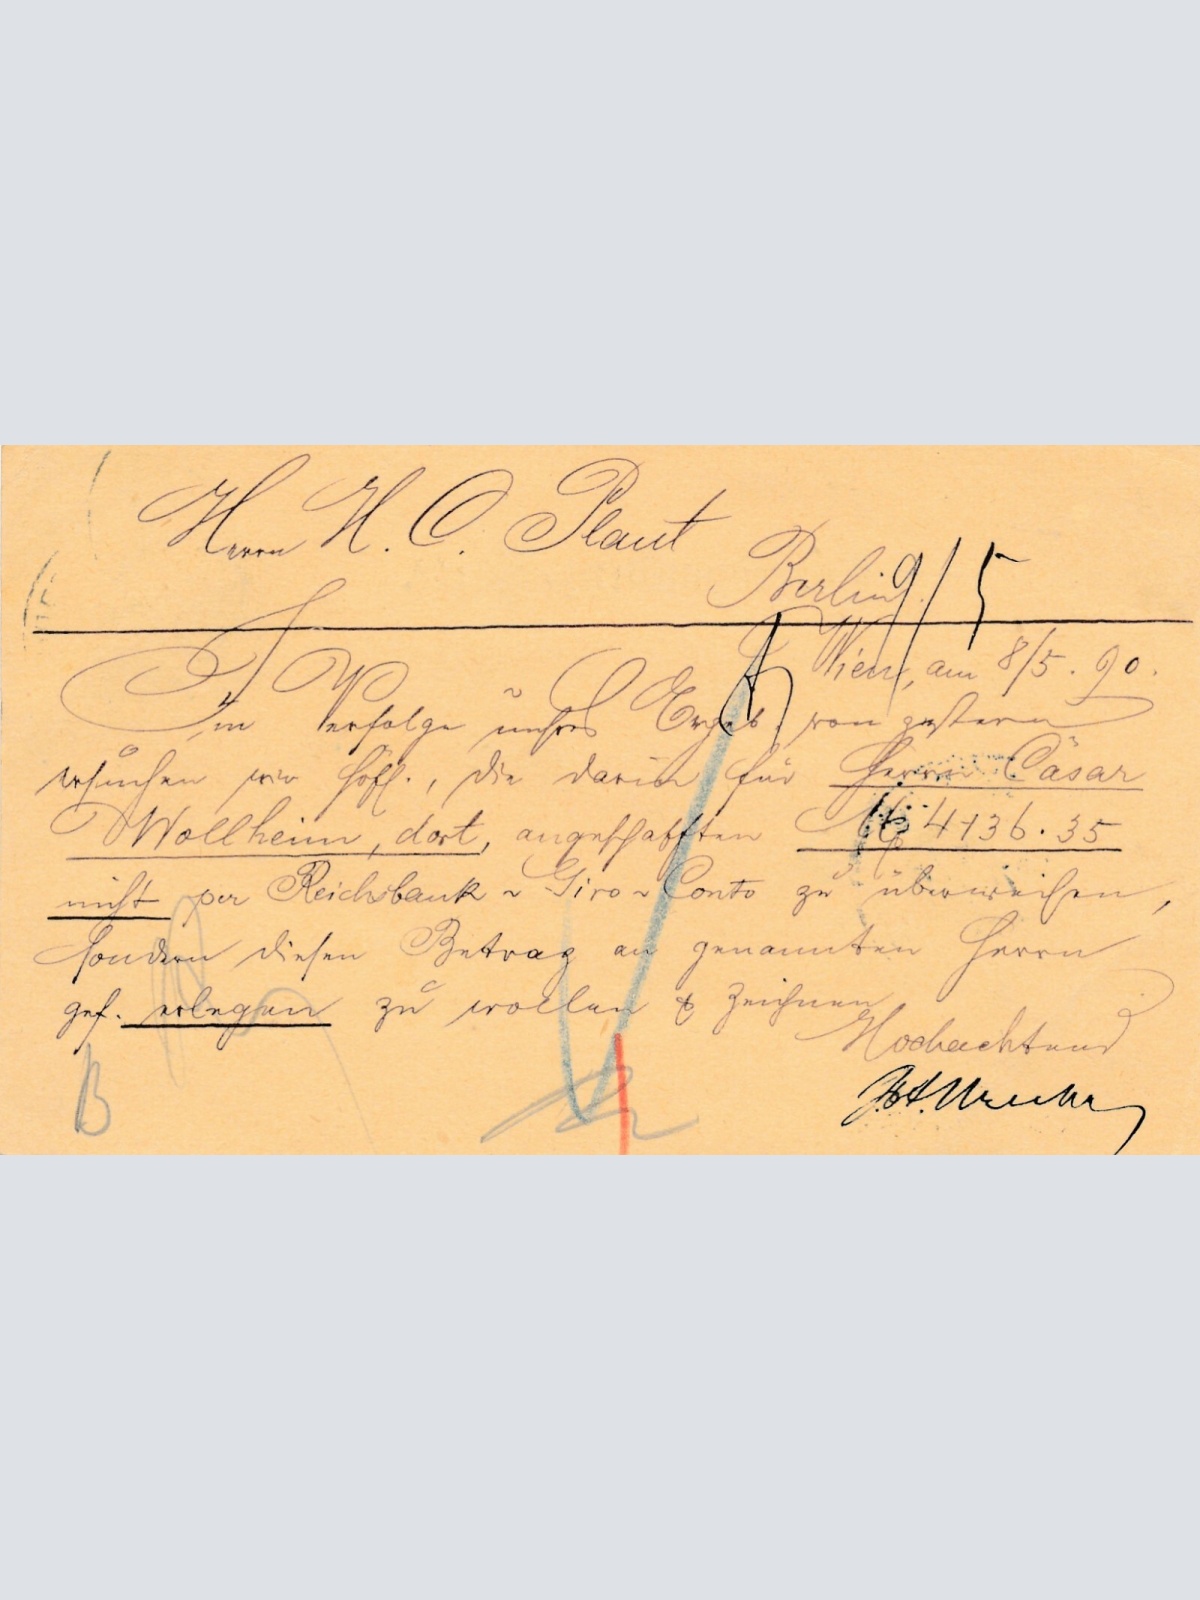 Herrn H. C. Plaut
Berlin
9/5
Wien, am 8/5. 90.
Im Verfolge unsres Ergeb. von gestern
ersuchen wir höfl., die darin für Herrn Cäsar
Wollheim, dort, angeschafften M 4136.35
nicht per Reichsbank-Giro-Conto zu überweisen,
sondern diesen Betrag an genannten Herrn
gef. erlegen zu wollen & zeichnen
Hochachtend
B